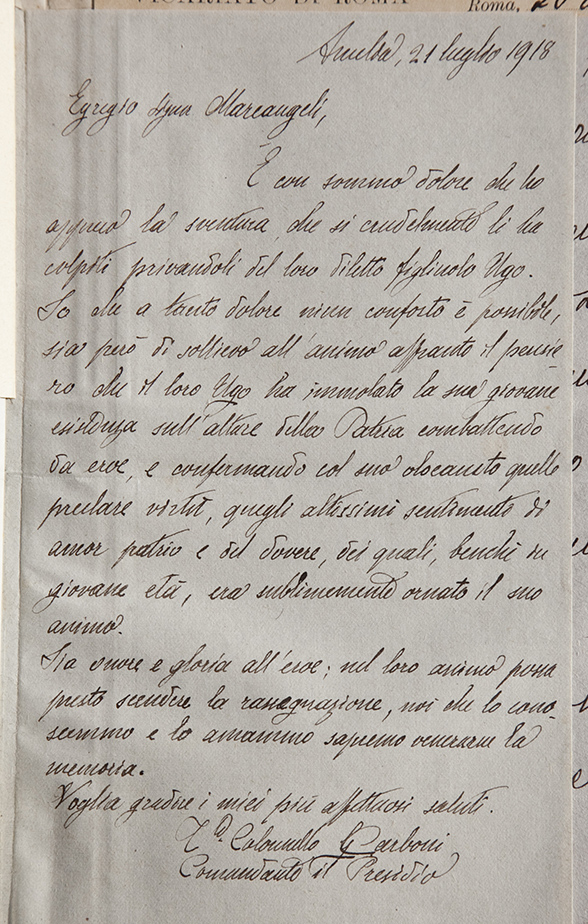 VICARIATO DI ROMA
Roma, 20
21 luglio 1918
Egregio Sign Marcangeli,
È con sommo dolore che ho
appreso la sventura che si crudelmente li ha
colpiti privandoli del loro diletto figliuolo Ugo.
So che a tanto dolore niun conforto è possibile,
sia però di sollievo all'animo affranto il pensie-
ro che il loro Ugo ha immolato la sua giovane
esistenza sull'altare della Patria combattendo
da eroe, e confermando col suo olocausto quelle
preclare virtù, quegli altissimi sentimenti di
amor patrio e del dovere, dei quali, benchè in
giovane età, era sublimemente ornato il suo
animo.
Sia onore e gloria all'eroe; nel loro animo possa
presto scendere la rassegnazione, noi che lo cono-
scemmo e lo amammo sapremo venerarne la
memoria.
Voglia gradire i miei più affettuosi saluti.
Colonnello G Carboni
Comandante il Presidio